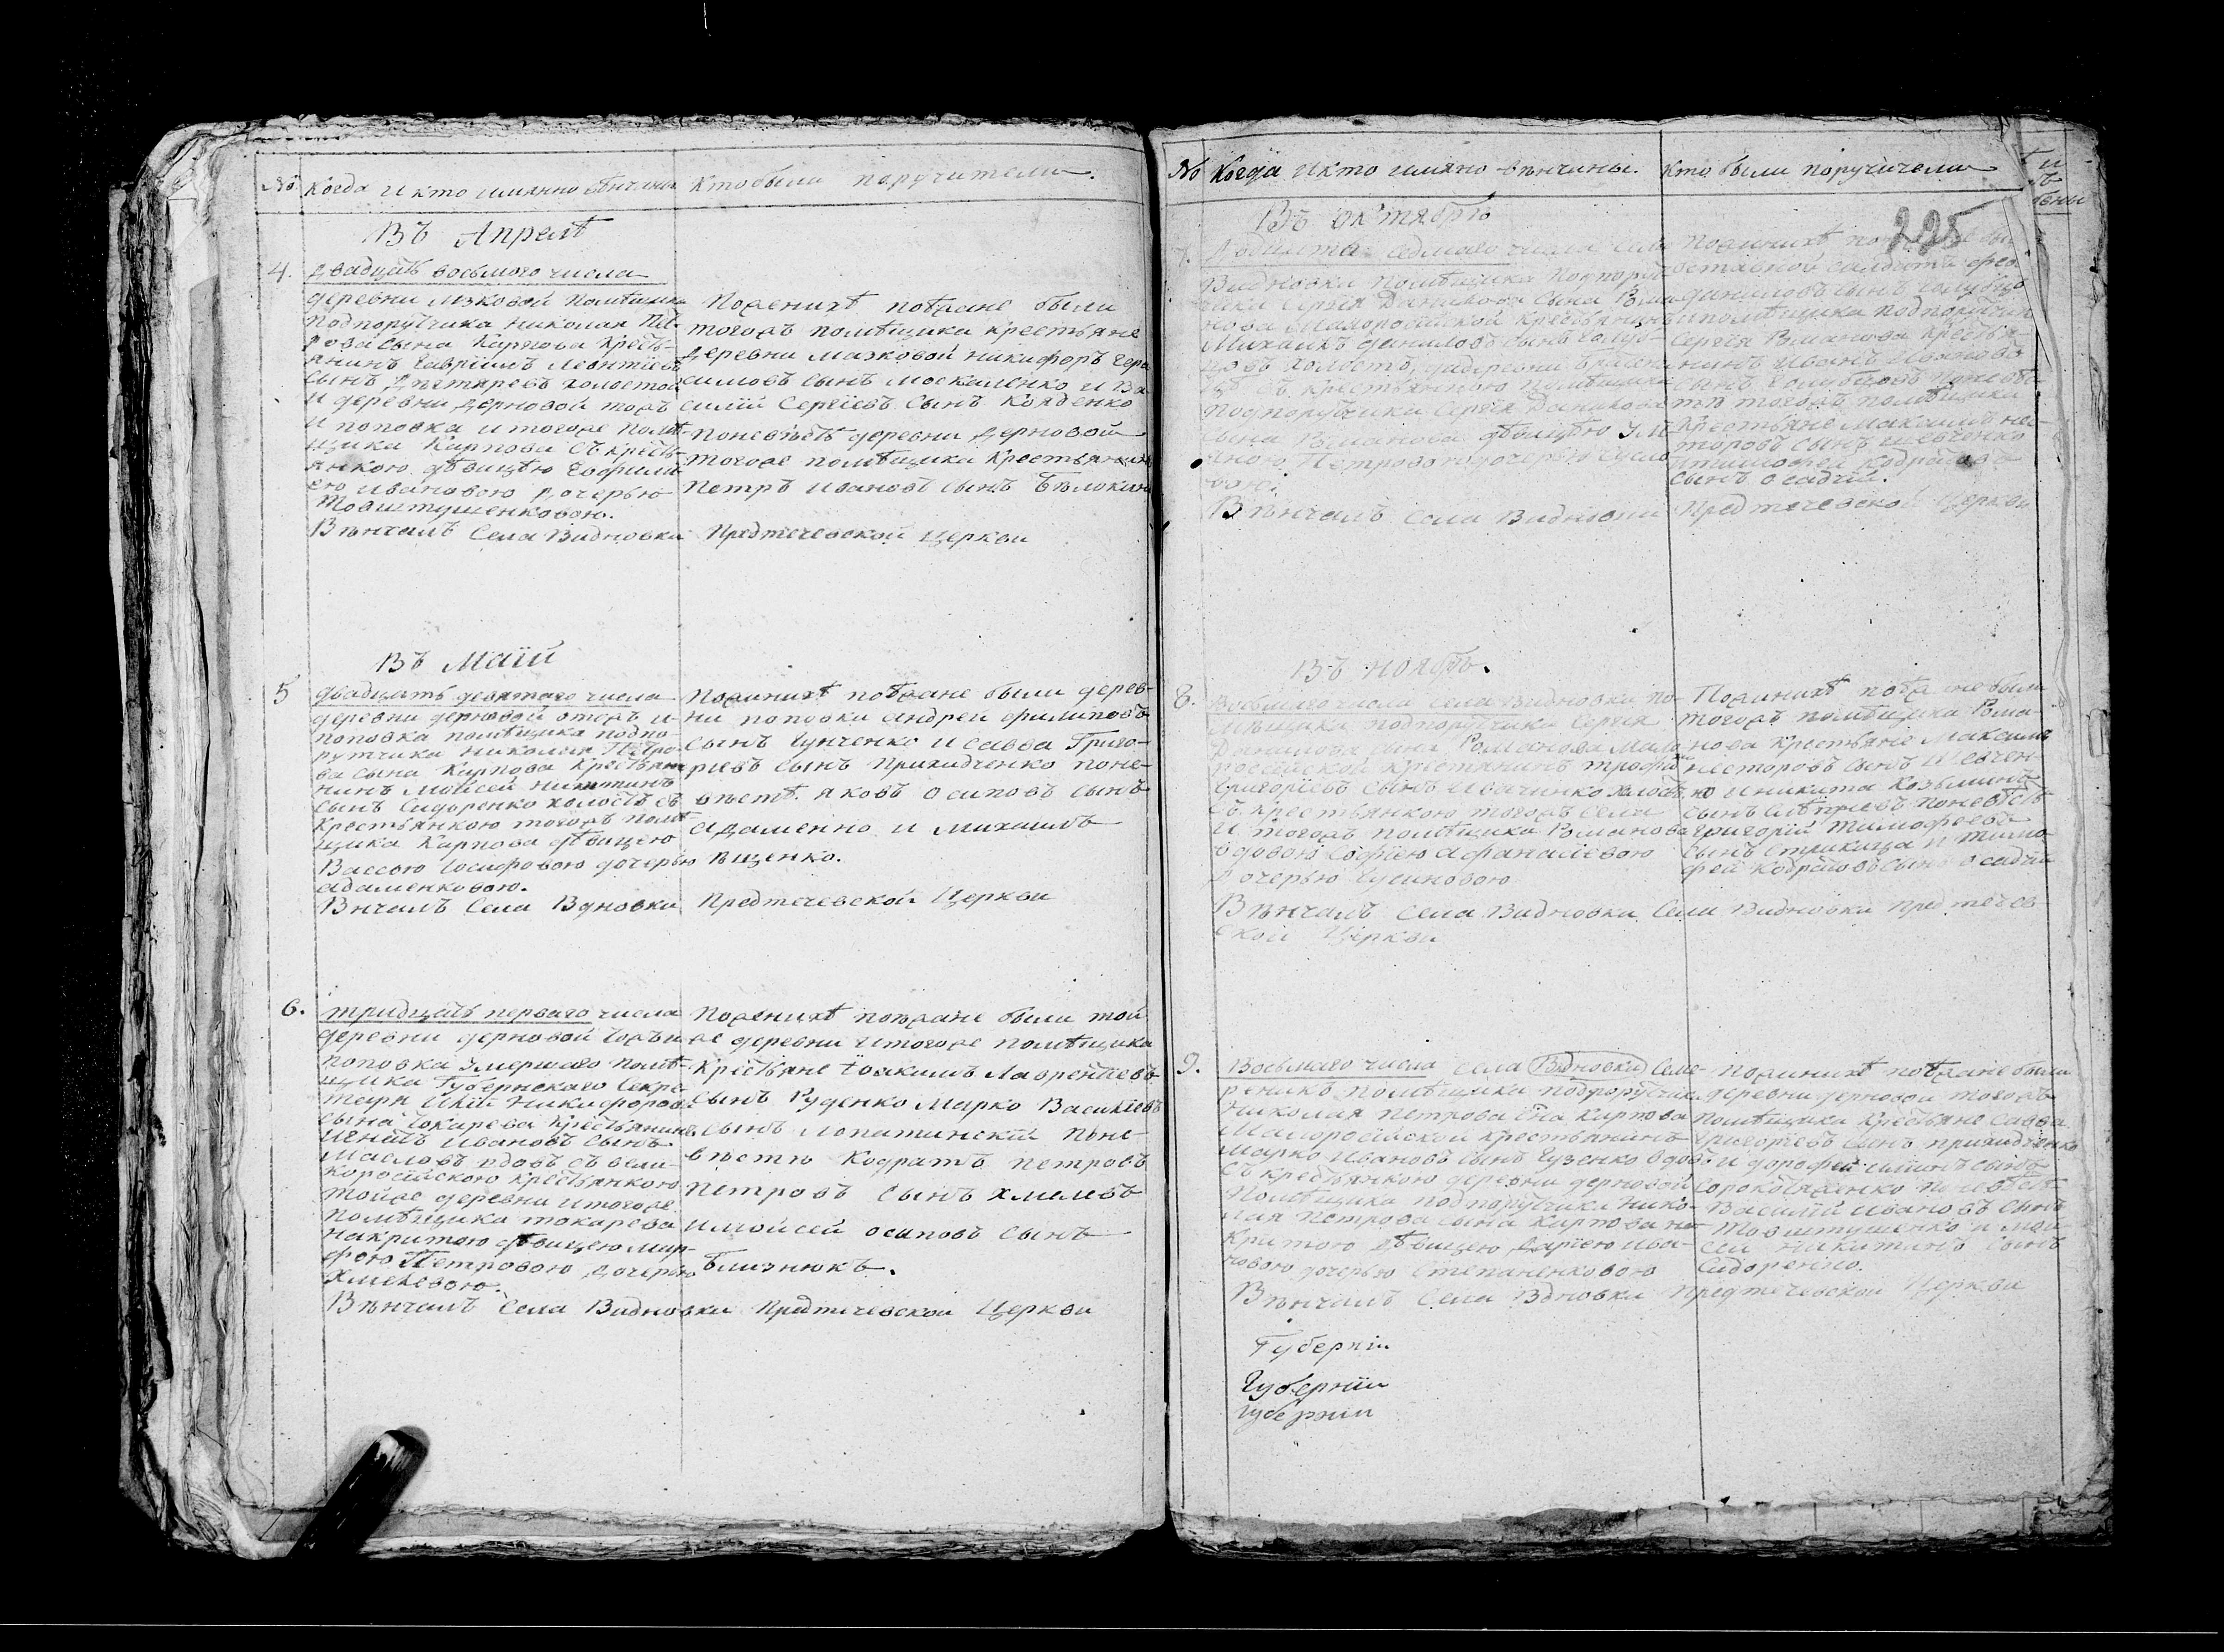 № Когда и кто имянно венчаны
Кто были поручители
Въ Апрелѣ
4. двадцать восьмого числа
деревни Мзковой Помѣщика
Подпорутчика Николая Пет-
рова сына Карпова Кресть-
янинъ Гавріилъ Леонтіевъ
сынъ холостой
и деревни Дерновой тожъ
и поповка и тогоже помѣ-
щика Карпова съ кресть-
янкою дѣвицею
Ивановою дочерью
Товштушенковою.
Поженихѣ поѣзжане были
тогожъ помѣщика крестьяне
деревни Мазковой Никифоръ Гера
симовъ сынъ Москаленко и Ва
силій Сергіевъ сынъ
Поневѣстѣ деревни Дерновой
тогоже помѣщика Крестьянинъ
Петръ Ивановъ сынъ
Вѣнчалъ Села Видновки Предтечевской Церкви
Въ Маіи
5 двадцать девятаго числа
деревни дерновой тожъ и-
поповка помѣщика подпо-
рутчика Николая Петро-
ва сына Карпова Крестьян
нинъ Моисей Никитинъ
сынъ Сидоренко холостъ съ
Крестьянкою тогожъ помѣ-
щика Карпова дѣвицею
Вассою Иосифовою дочерью
Адаменковою.
Пожинихѣ поѣзжане были дерев-
ни поповки Андрей филиповъ
сынъ Гунченко и Савва Григо-
риевъ сынъ Приходченко поне-
вѣстѣ. Яковъ Осиповъ сынъ
Адаменко и Михаилъ
Ященко.
Внчалъ Села Вдновки Предтечевской Церкви
6. тридцать перваго числа
деревни дерновой
поповка умершаго помѣ-
щика Губернскаго Секре
таря Никифорова
сына Токарева крестьянинъ
Игнатъ Ивановъ сынъ
Масловъ вдовъ съ вели-
коросійскою крестьянкою
тойже деревни и тогоже
помѣщика токарева
накритою дѣвицею Мар-
фою Петровою дочерью
Хмелевою.
Поженихѣ поѣзжане были той
же деревни и тогоже помѣщика
Крестьяне Іоакимъ Лаврентіевъ
сынъ Руденко Марко Васильевъ
сынъ Лопатинскій поне-
вѣстѣ Кодратъ Петровъ
Петровъ сынъ Хмелевъ
и Мойсей Осиповъ сынъ
Близнюкъ.
Вѣнчалъ Села Видновки Предтечевской Церкви
№ Когда и кто имяно вѣнчаны.
Кто были поручители
225
Въ октябрѣ
7. седмаго числа села
Видновки Помѣщика Подпору-
чика Сергія Данилова Сына Рома
нова Малоросійской Крестьянинъ
Михаилъ Даниловъ сынъ
холостъ,
съ крестьянкою помѣщика
Подпорутчика Сергія Данилова
сына Романова дѣвицею
Петровою дочерью
вою.
Пожинихѣ
отставной салдатъ
Даниловъ сынъ
и помѣщика подпорутчик
Сергія Романова крестья
нинъ Иванъ Ивановъ
сынъ поневѣс-
тѣ тогожъ помѣщика
Крестьяне Максимъ Не-
сторовъ сынъ Шевченко
и тимофей Кодратовъ
сынъ осадчій.
Вѣнчалъ Села Видновки Предтечевской Церкви
Въ ноябрѣ.
8. Восьмаго числа села Видновки по-
мѣщика подпорутчика Сергія
Данилова сына Романова Мало
россійской Крестянинъ трофимъ
Григоріевъ сынъ Шевченко холостъ
съ крестьянкою тогожъ села
и тогожъ помѣщика Романова
вдовою Софіею Афанасіевою
дочерью Гусиновою
Пожинихѣ поѣзжане были
тогожъ помѣщика Рома-
нова Крестьяне Максимъ
Несторовъ сынъ Шевчен-
ко и Никита Козьминъ
сынъ поневѣстѣ
Григорій Тимофеевъ
сынъ Стрикица и тимо
фей Кодратовъ сынъ осадчій
Вѣнчалъ Села Видновки Села Видновки предтечев-
ской Церкви
9. Восьмаго числа села Вдновки Семе-
реникъ помѣщика подпорутчика
Николая Петрова сна Карпова
Малоросійской крестьянинъ
Марко Ивановъ сынъ Гузенко вдовъ
съ крестьянкою деревни дерновой
Помѣщика подпорутчика Нико-
лая Петрова сына Карпова на-
критою дѣвицею Даріею Ива-
новою дочерью Степаненковою
пожинихѣ поѣзжане были
деревни дерновой тогожъ
помѣщика Крестьяне Савва
Григоріевъ сынъ Приходченко
и дорофей сынъ
поневѣстѣ
Василій Ивановъ сынъ
Товштушенко и Мой-
сей Никитинъ сынъ
Сидоренко.
Вѣнчалъ Села Вдновки Предтечевской Церкви
Губерніи
Губерніи
Губерніи